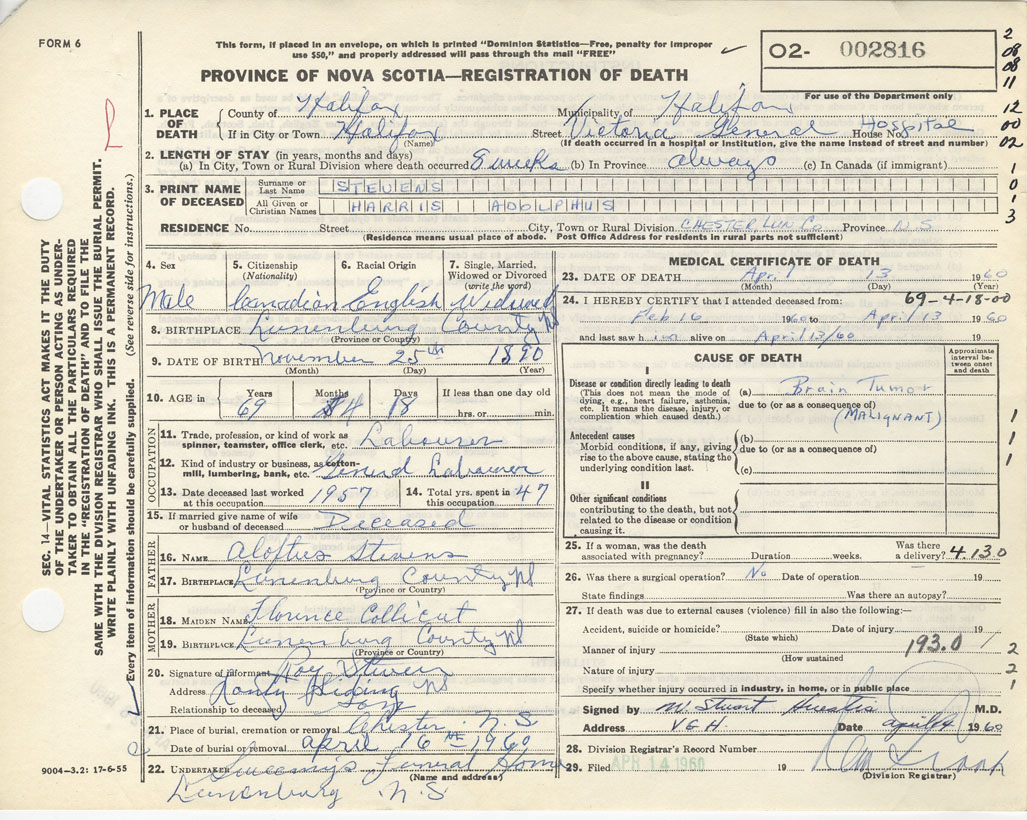 FORM 6
This form, if placed in an envelope, on which is printed "Dominion Statistics—Free, penalty for improper
use $50," and properly addressed will pass through the mail "FREE"
PROVINCE OF NOVA SCOTIA—REGISTRATION OF DEATH
O2- 002816
For use of the Department only
2
08
08
11
12
00
02
1
0
1
3
1. PLACE OF DEATH
County of Halifax Municipality of Halifax
If in City or Town Halifax Street Victoria General Hospital House No.
(Name) (If death occurred in a hospital or institution, give the name instead of street and number)
2. LENGTH OF STAY (in years, months and days)
(a) In City, Town or Rural Division where death occurred 8 weeks (b) In Province always (c) In Canada (if immigrant)
3. PRINT NAME OF DECEASED
Surname or Last Name STEVENS
All Given or Christian Names HARRIS ADOLPHUS
RESIDENCE No. Street City, Town or Rural Division CHESTER LUN CO Province N S
(Residence means usual place of abode. Post Office Address for residents in rural parts not sufficient)
4. Sex 5. Citizenship 6. Racial Origin 7. Single, Married,
(Nationality) Widowed or Divorced
(write the word)
Male Canadian English Widowed
8. BIRTHPLACE Lunenburg County NS
(Province or Country)
9. DATE OF BIRTH November 25th 1890
(Month) (Day) (Year)
10. AGE in Years Months Days If less than one day old
69 4 18 hrs. or min.
OCCUPATION
11. Trade, profession, or kind of work as
spinner, teamster, office clerk, etc. Labourer
12. Kind of industry or business, as cotton-
mill, lumbering, bank, etc. General Labourer
13. Date deceased last worked at this occupation 1957 14. Total yrs. spent in this occupation 47
15. If married give name of wife
or husband of deceased Deceased
FATHER
16. NAME Aloftus Stevens
17. BIRTHPLACE Lunenburg County NS
(Province or Country)
MOTHER
18. MAIDEN NAME Florence Collicut
19. BIRTHPLACE Lunenburg County NS
(Province or Country)
20. Signature of informant Roy Stevens
Address Siding NS
Relationship to deceased Son
21. Place of burial, cremation or removal Chester N.S
Date of burial or removal April 16 1960
22. UNDERTAKER Sweeny's Funeral Home
(Name and address)
Lunenburg N.S
9004—3.2: 17-6-55
MEDICAL CERTIFICATE OF DEATH
23. DATE OF DEATH April 13 1960
(Month) (Day) (Year)
24. I HEREBY CERTIFY that I attended deceased from: 69-4-18-00
Feb 16 1960 to April 13 1960
and last saw him alive on April 13/60 19
CAUSE OF DEATH
Approximate interval between onset and death
I
Disease or condition directly leading to death
(This does not mean the mode of
dying, e.g., heart failure, asthenia,
etc. It means the disease, injury, or
complication which caused death.)
(a) Brain Tumor
due to (or as a consequence of)
(MALIGNANT)
Antecedent causes
Morbid conditions, if any, giving
rise to the above cause, stating the
underlying condition last.
(b)
due to (or as a consequence of)
(c)
II
Other significant conditions
contributing to the death, but not
related to the disease or condition
causing it.
1
1
1
25. If a woman, was the death Was there
associated with pregnancy? Duration weeks. a delivery? 4.130
26. Was there a surgical operation? No Date of operation 19
State findings Was there an autopsy?
27. If death was due to external causes (violence) fill in also the following:—
Accident, suicide or homicide? Date of injury 19
(State which)
Manner of injury 193.0
(How sustained
Nature of injury
Specify whether injury occurred in industry, in home, or in public place
2
2
1
Signed by W. Stuart Huestis M.D.
Address V.G.H. Date April 14 1960
28. Division Registrar's Record Number
29. Filed APR 14 1960 19
(Division Registrar)
SEC. 14—VITAL STATISTICS ACT MAKES IT THE DUTY
OF THE UNDERTAKER OR PERSON ACTING AS UNDER-
TAKER TO OBTAIN ALL THE PARTICULARS REQUIRED
IN THE "REGISTRATION OF DEATH" AND TO FILE THE
SAME WITH THE DIVISION REGISTRAR WHO SHALL ISSUE THE BURIAL PERMIT.
WRITE PLAINLY WITH UNFADING INK. THIS IS A PERMANENT RECORD.
Every item of information should be carefully supplied. (See reverse side for instructions.)